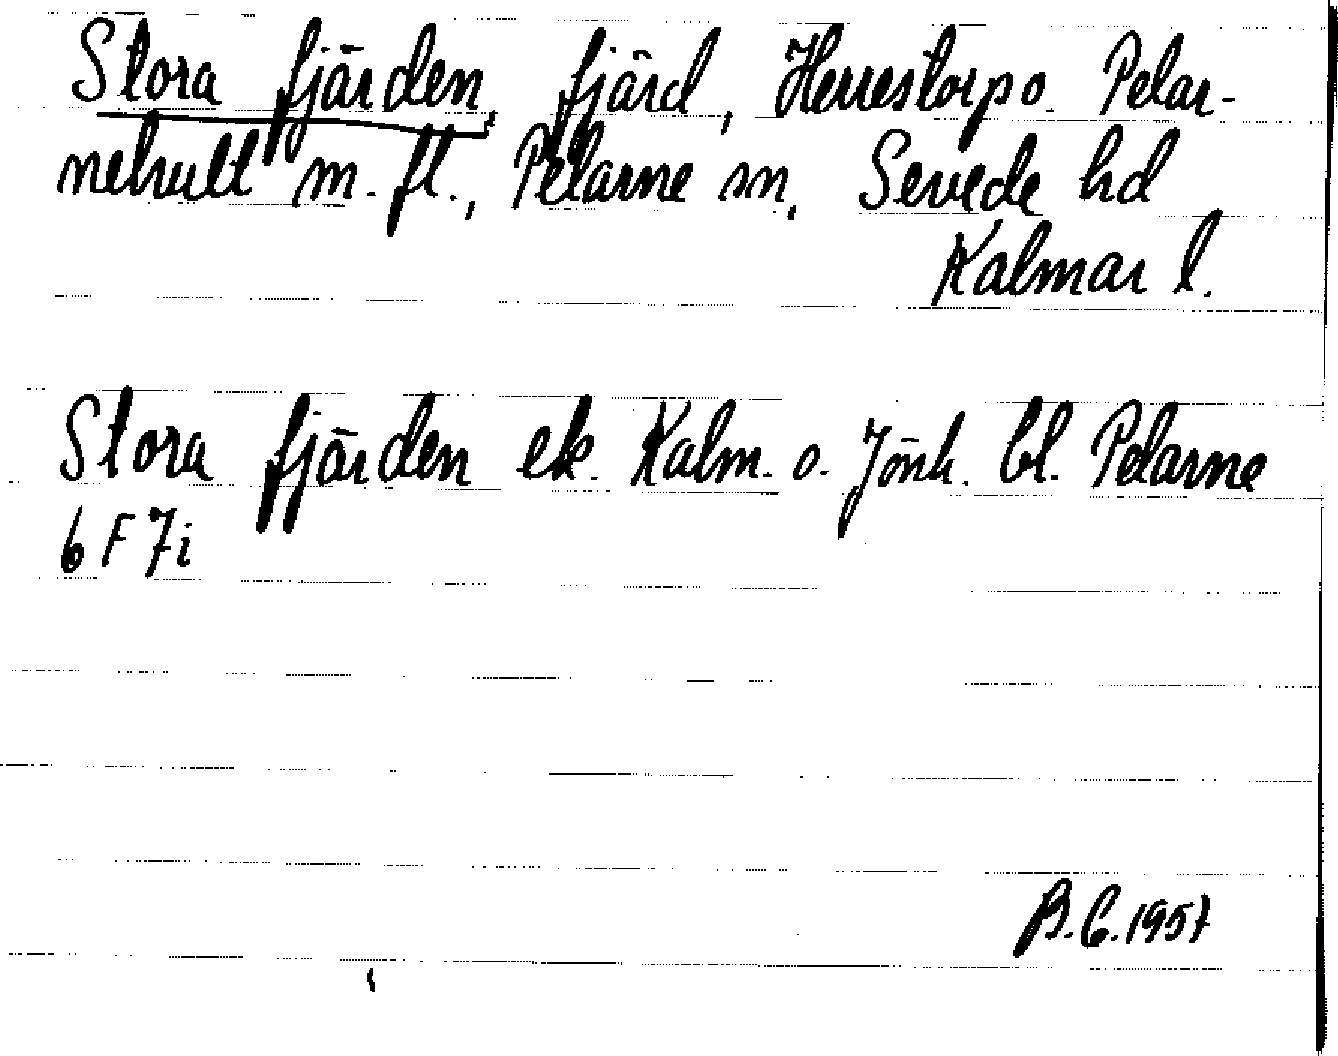 Stora fjärden, fjärd, Herrestorp o. Pelar-
nehult m. fl., Pelarne sn, Sevede hd
Kalmar l.
Stora fjärden ek. Kalm. o. Jönk. bl. Pelarne
6 F 7i
B.C. 1957